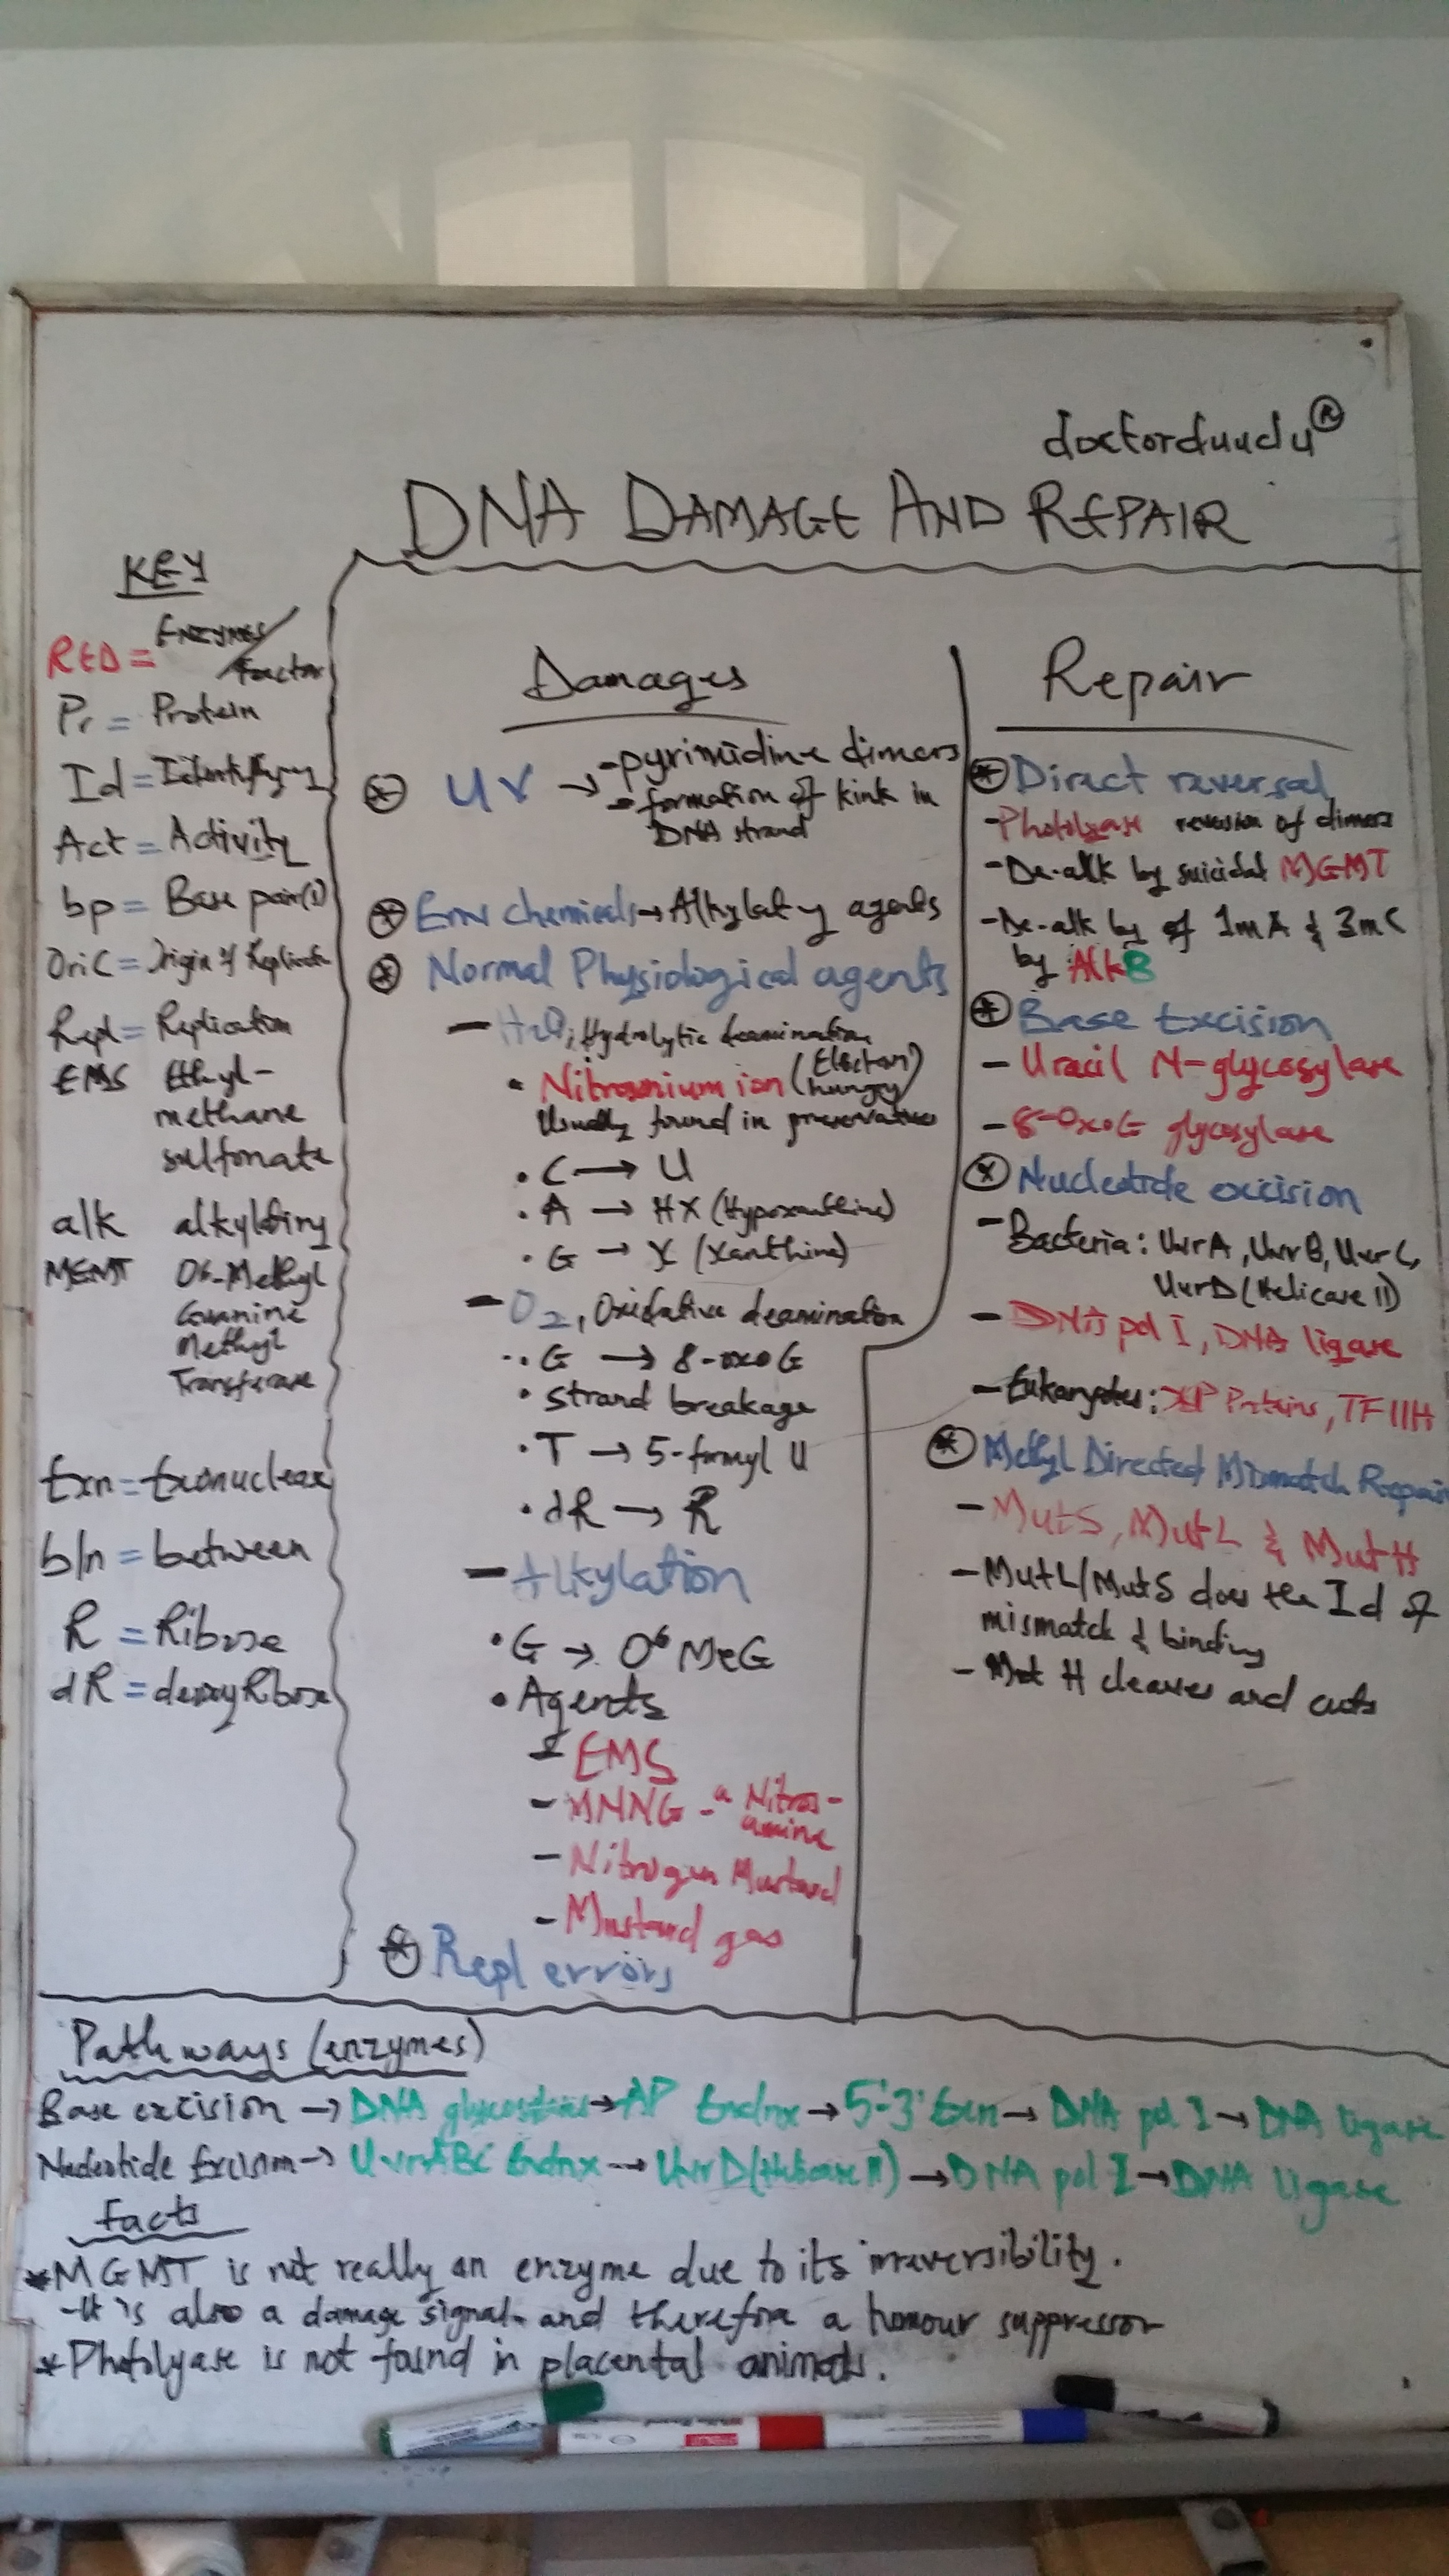 doctordudu®
DNA DAMAGE AND REPAIR
KEY
RED = Enzymes/factor
Pr = Protein
Id = Identifying
Act = Activity
bp = Base pair(s)
OriC = Origin of Replication
Repl = Replication
EMS Ethyl-
methane
sulfonate
alk alkylating
MGMT O6-Methyl
Guanine
Methyl
Transferase
Exn = Exonuclease
b/n = between
R = Ribose
dR = deoxyRibose
Damages
* UV → - Pyrimidine dimers
- formation of kink in
DNA strand
* Env chemicals → Alkylating agents
* Normal Physiological agents
- H2O, Hydrolytic deamination
• Nitrosonium ion (Electron hungry)
Usually found in preservatives
• C → U
• A → HX (Hypoxanthine)
• G → X (Xanthine)
- O2, Oxidative deamination
• G → 8-oxoG
• Strand breakage
• T → 5-formyl U
• dR → R
- Alkylation
• G → O6 MeG
• Agents
- EMS
- MNNG - a Nitros-
amine
- Nitrogen Mustard
- Mustard gas
* Repl errors
Repair
* Direct reversal
- Photolyase reversion of dimers
- De-alk by suicidal MGMT
- De-alk by of 1mA & 3mC
by AlkB
* Base Excision
- Uracil N-glycosylase
- 8-OxoG glycosylase
* Nucleotide excision
- Bacteria: UvrA, UvrB, UvrC,
UvrD (Helicase II)
- DNA pol I, DNA ligase
- Eukaryotes: XP Proteins, TFIIH
* Methyl Directed Mismatch Repair
- MutS, MutL & MutH
- MutL/MutS does the Id of
mismatch & binding
- Mut H cleaves and cuts
Pathways (enzymes)
Base excision → DNA glycosylase → AP Endnx → 5'-3' Exn → DNA pol I → DNA ligase
Nucleotide Excision → UvrABC Endnx → UvrD (Helicase II) → DNA pol I → DNA ligase
Facts
* MGMT is not really an enzyme due to its irreversibility.
- It is also a damage signal and therefore a tumour suppressor
* Photolyase is not found in placental animals.